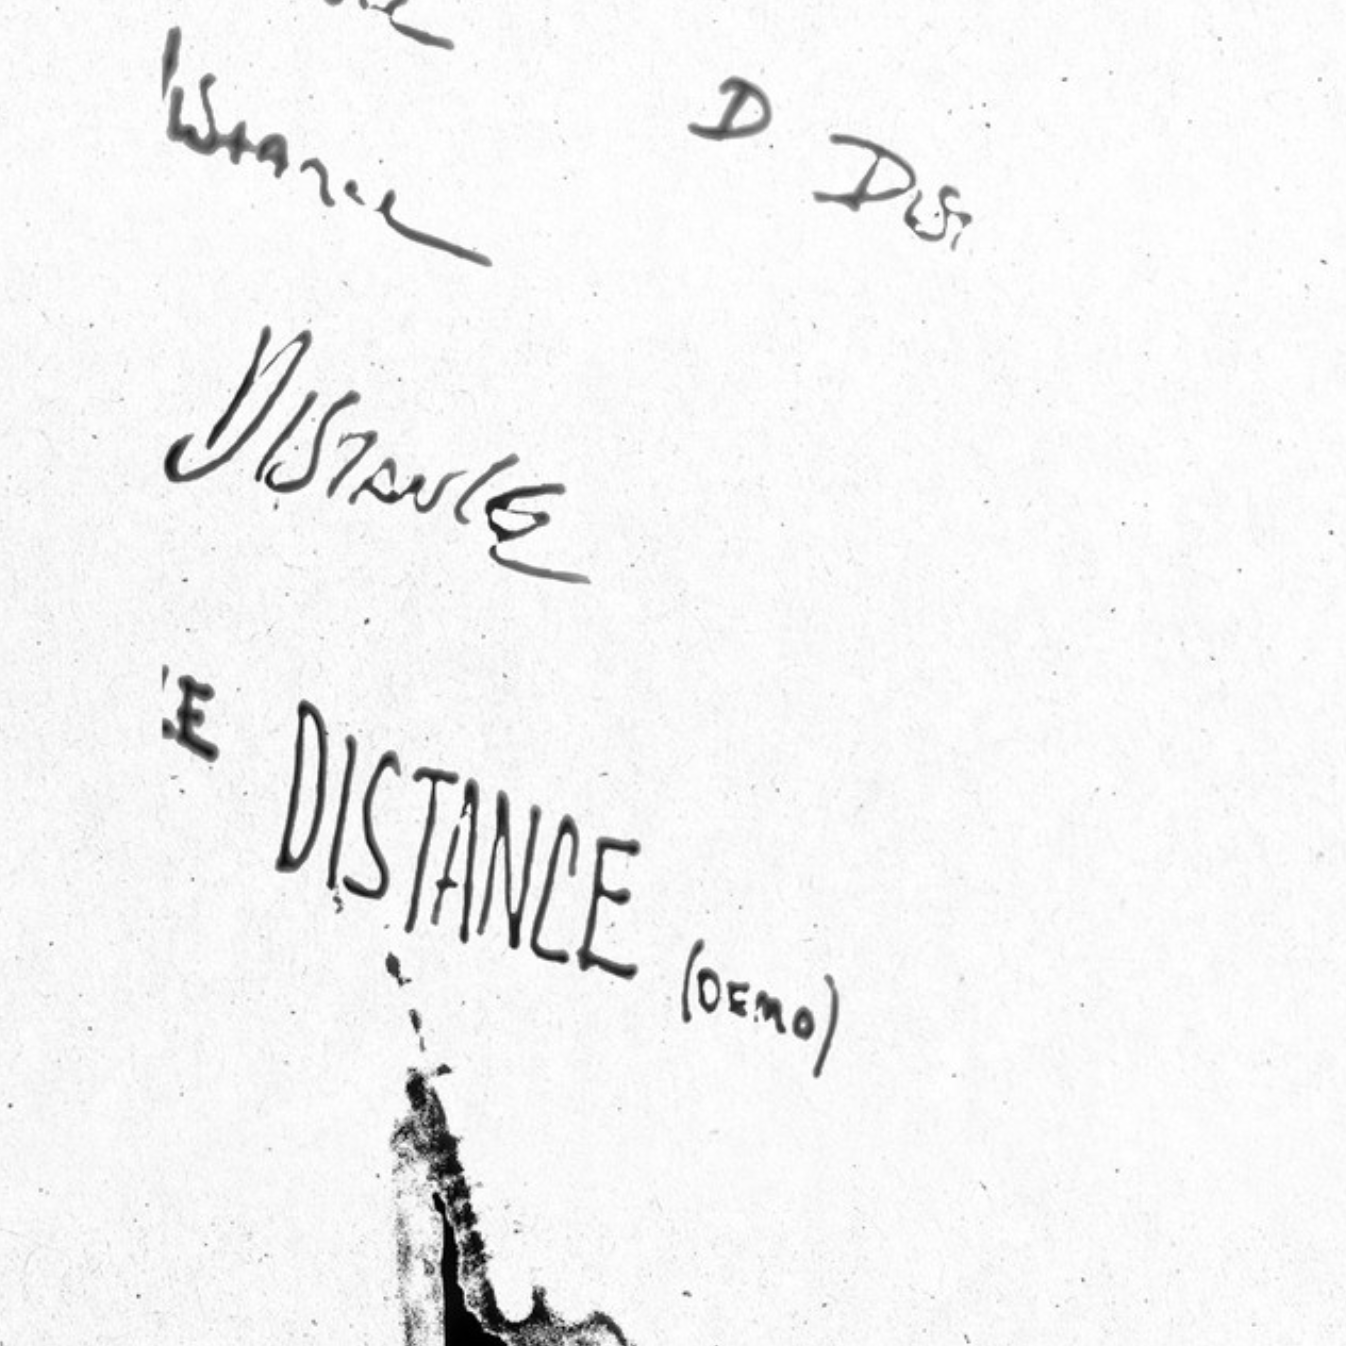 Distance
D Dis
DISTANCE
E DISTANCE (DEMO)